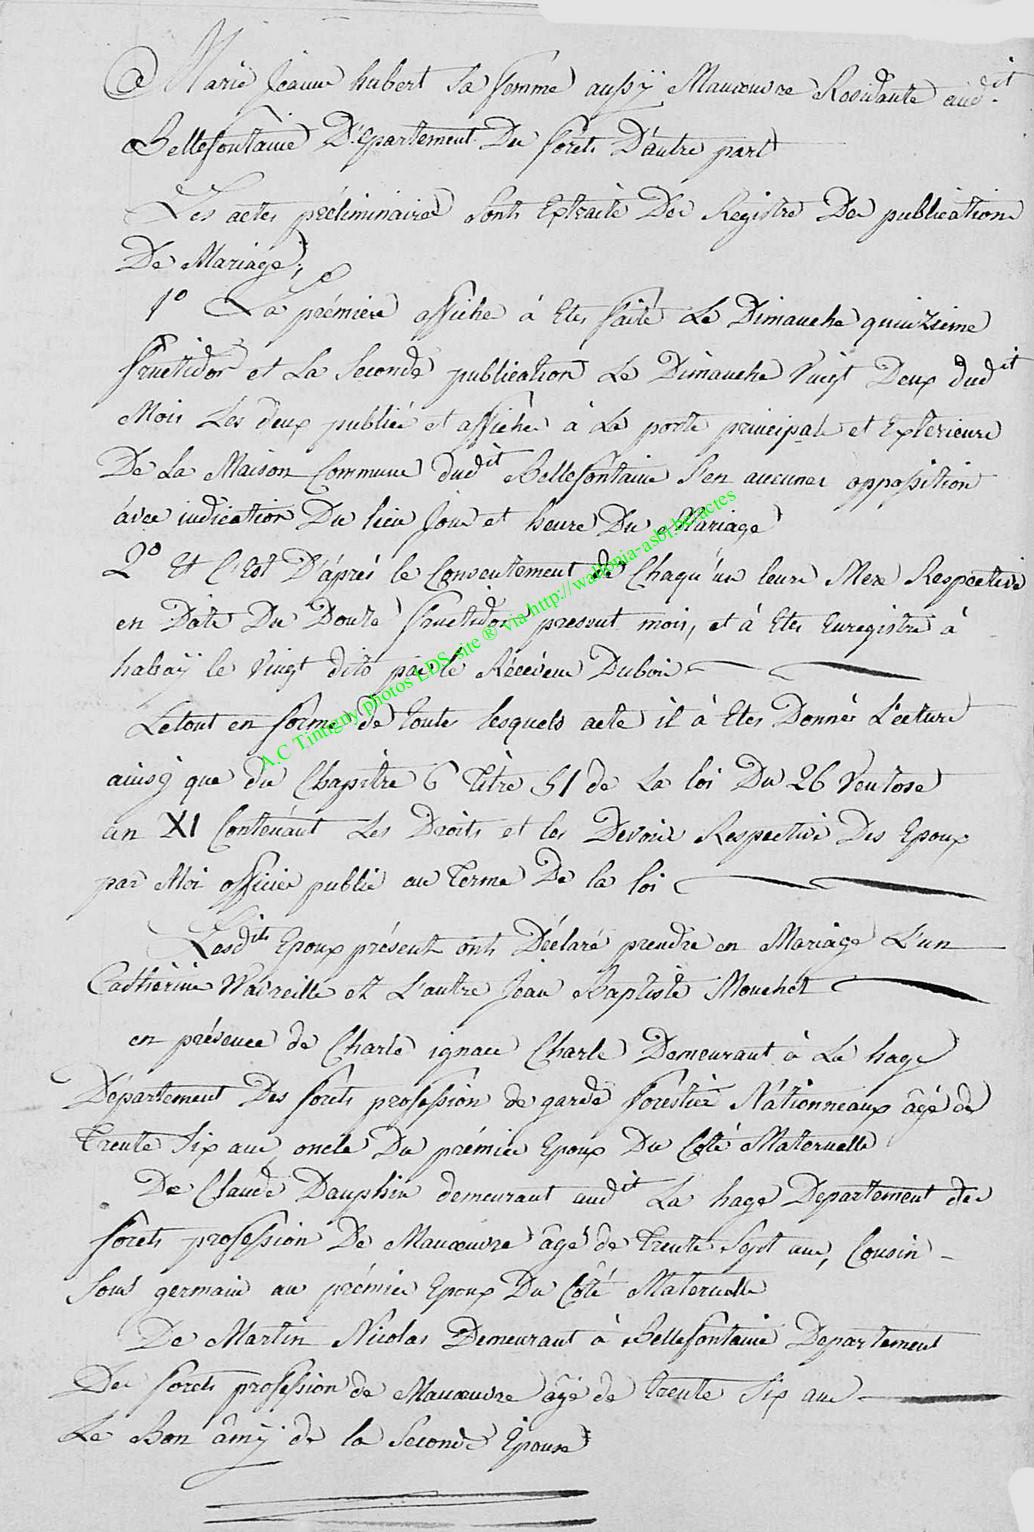 @ Marie Jeanne hubert sa femme aussÿ Manoeuvre Residante aud.it
Bellefontaine D'Epartement Des forets D'autre part
Les actes préliminaires sont Extraite Des Registre De publication
De Mariage,
1o La prémiere affiche à Etes faite Le Dimanche quinzieme
fructidor et La Seconde publication Le Dimanche Vingt Deux dudit
Mois Les deux publiés et affichés à La porte principale et Exterieure
De La Maison Commune dudit Bellefontaine S'en aucunes opposition
avec indication Du lieu Jour et heure Du Mariage
2o Et C'Est D'áprés le Consentement de Cháqu'un leurs Mere Respective
en Date Du Douze fructidor present mois, et à Etes Enregistré à
habaÿ le Vingt dito par le Récéveur Dubois
Le tout en forme de toutes lesquels acte il à Etes Donnés L'ecture
ainsÿ que du Chapitre 6 titre 51 de La loi Du 26 Ventose
an XI Contenant Les Droits et les Devoirs Respective Des Epoux
par Moi officier public au terme De la loi
Lesdits Epoux présent onts Déclaré prendre en Mariage L'un
Catherine Wavreille et L'autre Jean Baptiste Mouchet
en présence de Charle ignace Charle Demeurant à La hage
Département Des forets profession de garde forestier Nátionneaux âgé de
trente Six ans, oncle Du prémier Epoux Du Coté Maternelle
De Claude Dauphin demeurant audit La hage Departement des
forets profession De Manoeuvre âgé de trente Sept ans, Cousin
sous germain au prémier Epoux Du Côté Maternelle
De Martin Nicolas Demeurant à Bellefontaine Departement
Des forets profession de Manoeuvre âgé de trente Six ans
Le Bon âmÿ de la Seconde Epouse
A.C Tintigny photos EDS site ® via http://wallonia-asbl.be/actes